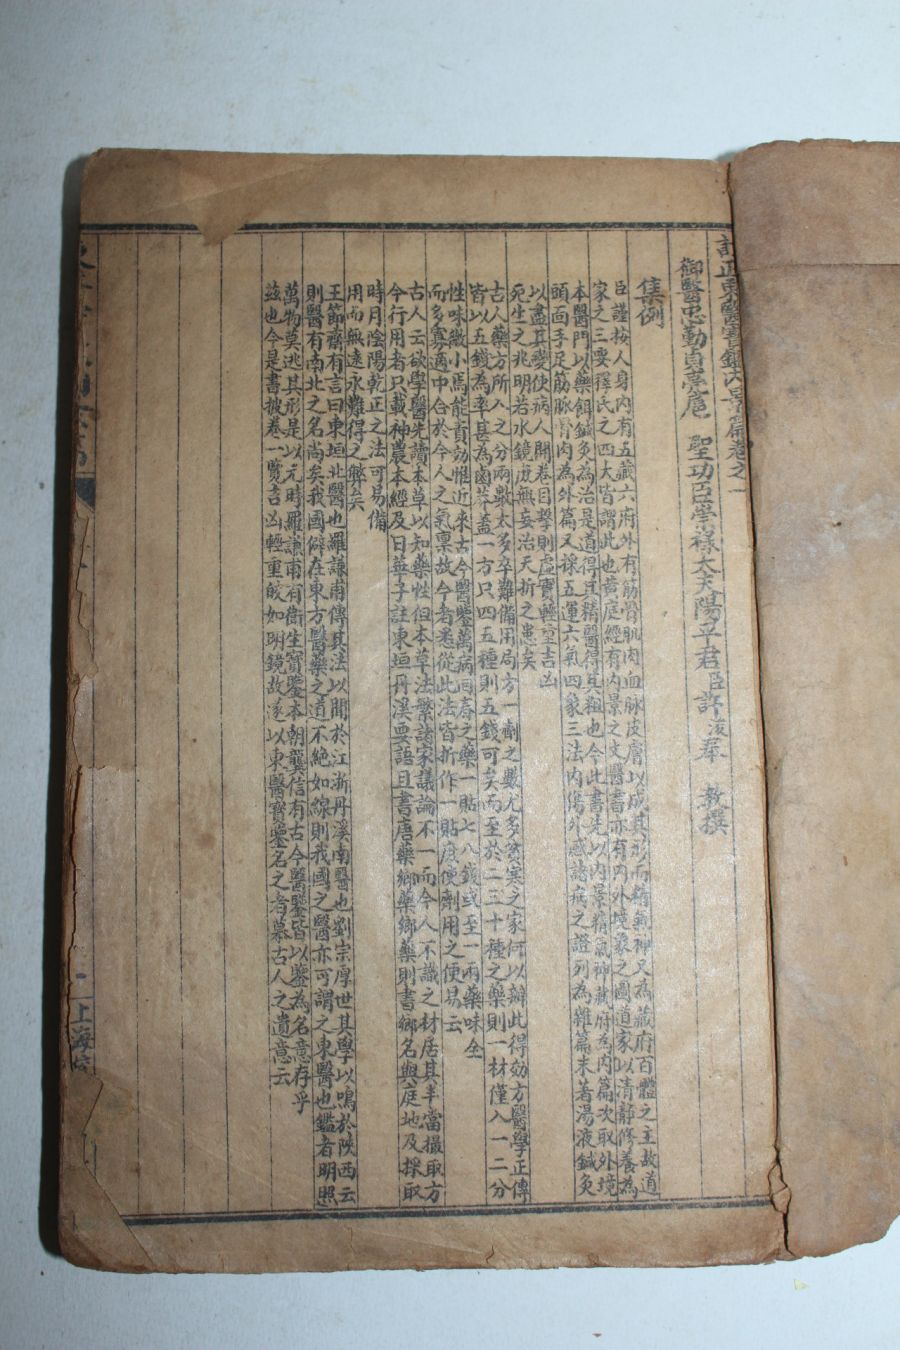 訂正東醫寶鑑內景篇卷之一
御醫忠勤貞亮扈 聖功臣崇祿大夫陽平君臣許浚奉 教撰
集例
臣謹按人身內有五藏六府外有筋骨肌肉血脉皮膚以成其形而精氣神又為藏府百體之主故道
家之三要釋氏之四大皆謂此也黃庭經有內景之文醫書亦有內外境象之圖道家以清靜修養為
本醫門以藥餌鍼灸為治是道得其精醫得其粗也今此書先以內景精氣神藏府為內篇次取外境
頭面手足筋脉骨肉為外篇又採五運六氣四象三法內傷外感諸病之證列為雜篇末著湯液鍼灸
以盡其變使病人開卷目擊則虛實輕重吉凶
死生之兆明若水鏡庶無妄治夭折之患矣
古人藥方所入之分兩數太多卒難備用局方一劑之數尤多貧寒之家何以辦此得効方醫學正傳
皆以五錢為率甚為鹵莽盖一方只四五種則五錢可矣而至於二三十種之藥則一材僅入一二分
性味微小焉能責効惟近來古今醫鑒萬病回春之藥一貼七八錢或至一兩藥味全
而多寡適中合於今人之氣禀故今者悉從此法皆折作一貼庶便劑用之便易云
古人云欲學醫先讀本草以知藥性但本草法繁諸家議論不一而今人不識之材居其半當撮取方
今行用者只載神農本經及日華子註東垣丹溪要語且書唐藥鄉藥鄉藥則書鄉名與庭地及採取
時月陰陽乾正之法可易備
用而無遠永難得之弊矣
王節齋有言曰東垣北醫也羅謙甫傳其法以聞於江浙丹溪南醫也劉宗厚世其學以鳴於陝西云
則醫有南北之名尚矣我國僻在東方醫藥之道不絕如線則我國之醫亦可謂之東醫也鑑者明照
萬物莫逃其形是以元時羅謙甫有衛生寶鑒本朝龔信有古今醫鑒皆以鑒為名意存乎
玆也今是書披卷一覽吉凶輕重皎如明鏡故遂以東醫寶鑒名之者慕古人之遺意云
一 上海